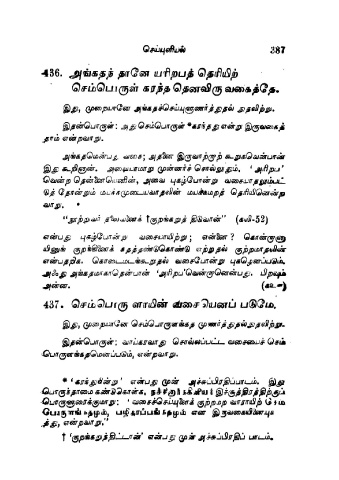 செய்யுளியல் 387
436. அங்கதந் தானே யரிறபத் தெரியிற்
செம்பொருள் கரந்த தெனவிரு வகைத்தே.
இது, முறையானே அங்கதச்செய்யுளுணர்த்துதல் நுதலிற்று.
இதன்பொருள்: அது செம்பொருள் *கரந்தது என்று இருவகைத்
தாம் என்றவாறு.
அங்கதமென்பது வசை; அதனை இருவாற்றாற் கூறுகவென்பான்
இது கூறினான். அவையாமாறு முன்னர்ச் சொல்லுதும். 'அரிறப'
வென்ற தென்னையெனின், அவை புகழ்போன்று வசையாதலும்பட்
டுத் தோன்றும் மயக்கமுடையவாதலின் மயக்கமறத் தெரியினென்ற
வாறு. *
“நூற்றவர் தலைவனைக் †குறங்கறுத் திடுவான்” (கலி-52)
என்பது புகழ்போன்று வசையாயிற்று; என்னை? கொன்றானு
யினுங் குறங்கினைக் கதத்தண்டுகொண்டு எற்றுதல் குற்றமாதலின்
என்பதறிக. கொடைமடங்கூறுதல் வசைபோன்று புகழெனப்படும்.
அஃது அங்கதமாகாதென்பான் 'அரிறப'வென்றானென்பது. பிறவும்
அன்ன.
437. செம்பொரு ளாயின் வசையெனப் படுமே.
இது, முறையானே செம்பொருளங்கத முணர்த்துதல்நுதலிற்று.
இதன்பொருள்: வாய்காவாது சொல்லப்பட்ட வசையைச் செம்
பொருளங்கதமெனப்படும், என்றவாறு.
* 'கரந்ததென்று' என்பது முன் அச்சுப்பிரதிப்பாடம். இது
பொருந்தாமை கண்டுகொள்க, நச்சினார்க்கினியர் இச்சூத்திரத்திற்குப்
பொருளுரைக்குமாறு: 'வசைச்செய்யுளைக் குற்றமற வாராயிற் செம
பொருளங்கதமும், பழிகரப்பங்கதமும் என இருவகையினையுடை
த்து, என்றவாறு.'
† 'குறங்கறுத்திட்டான்' என்பது முன் அச்சுப்பிரதிப் பாடம்.